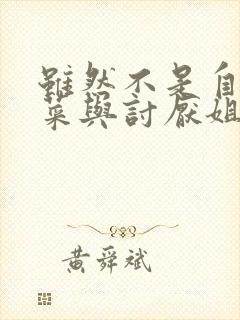 雖然不是自
菜與討厭姐
黃舜斌